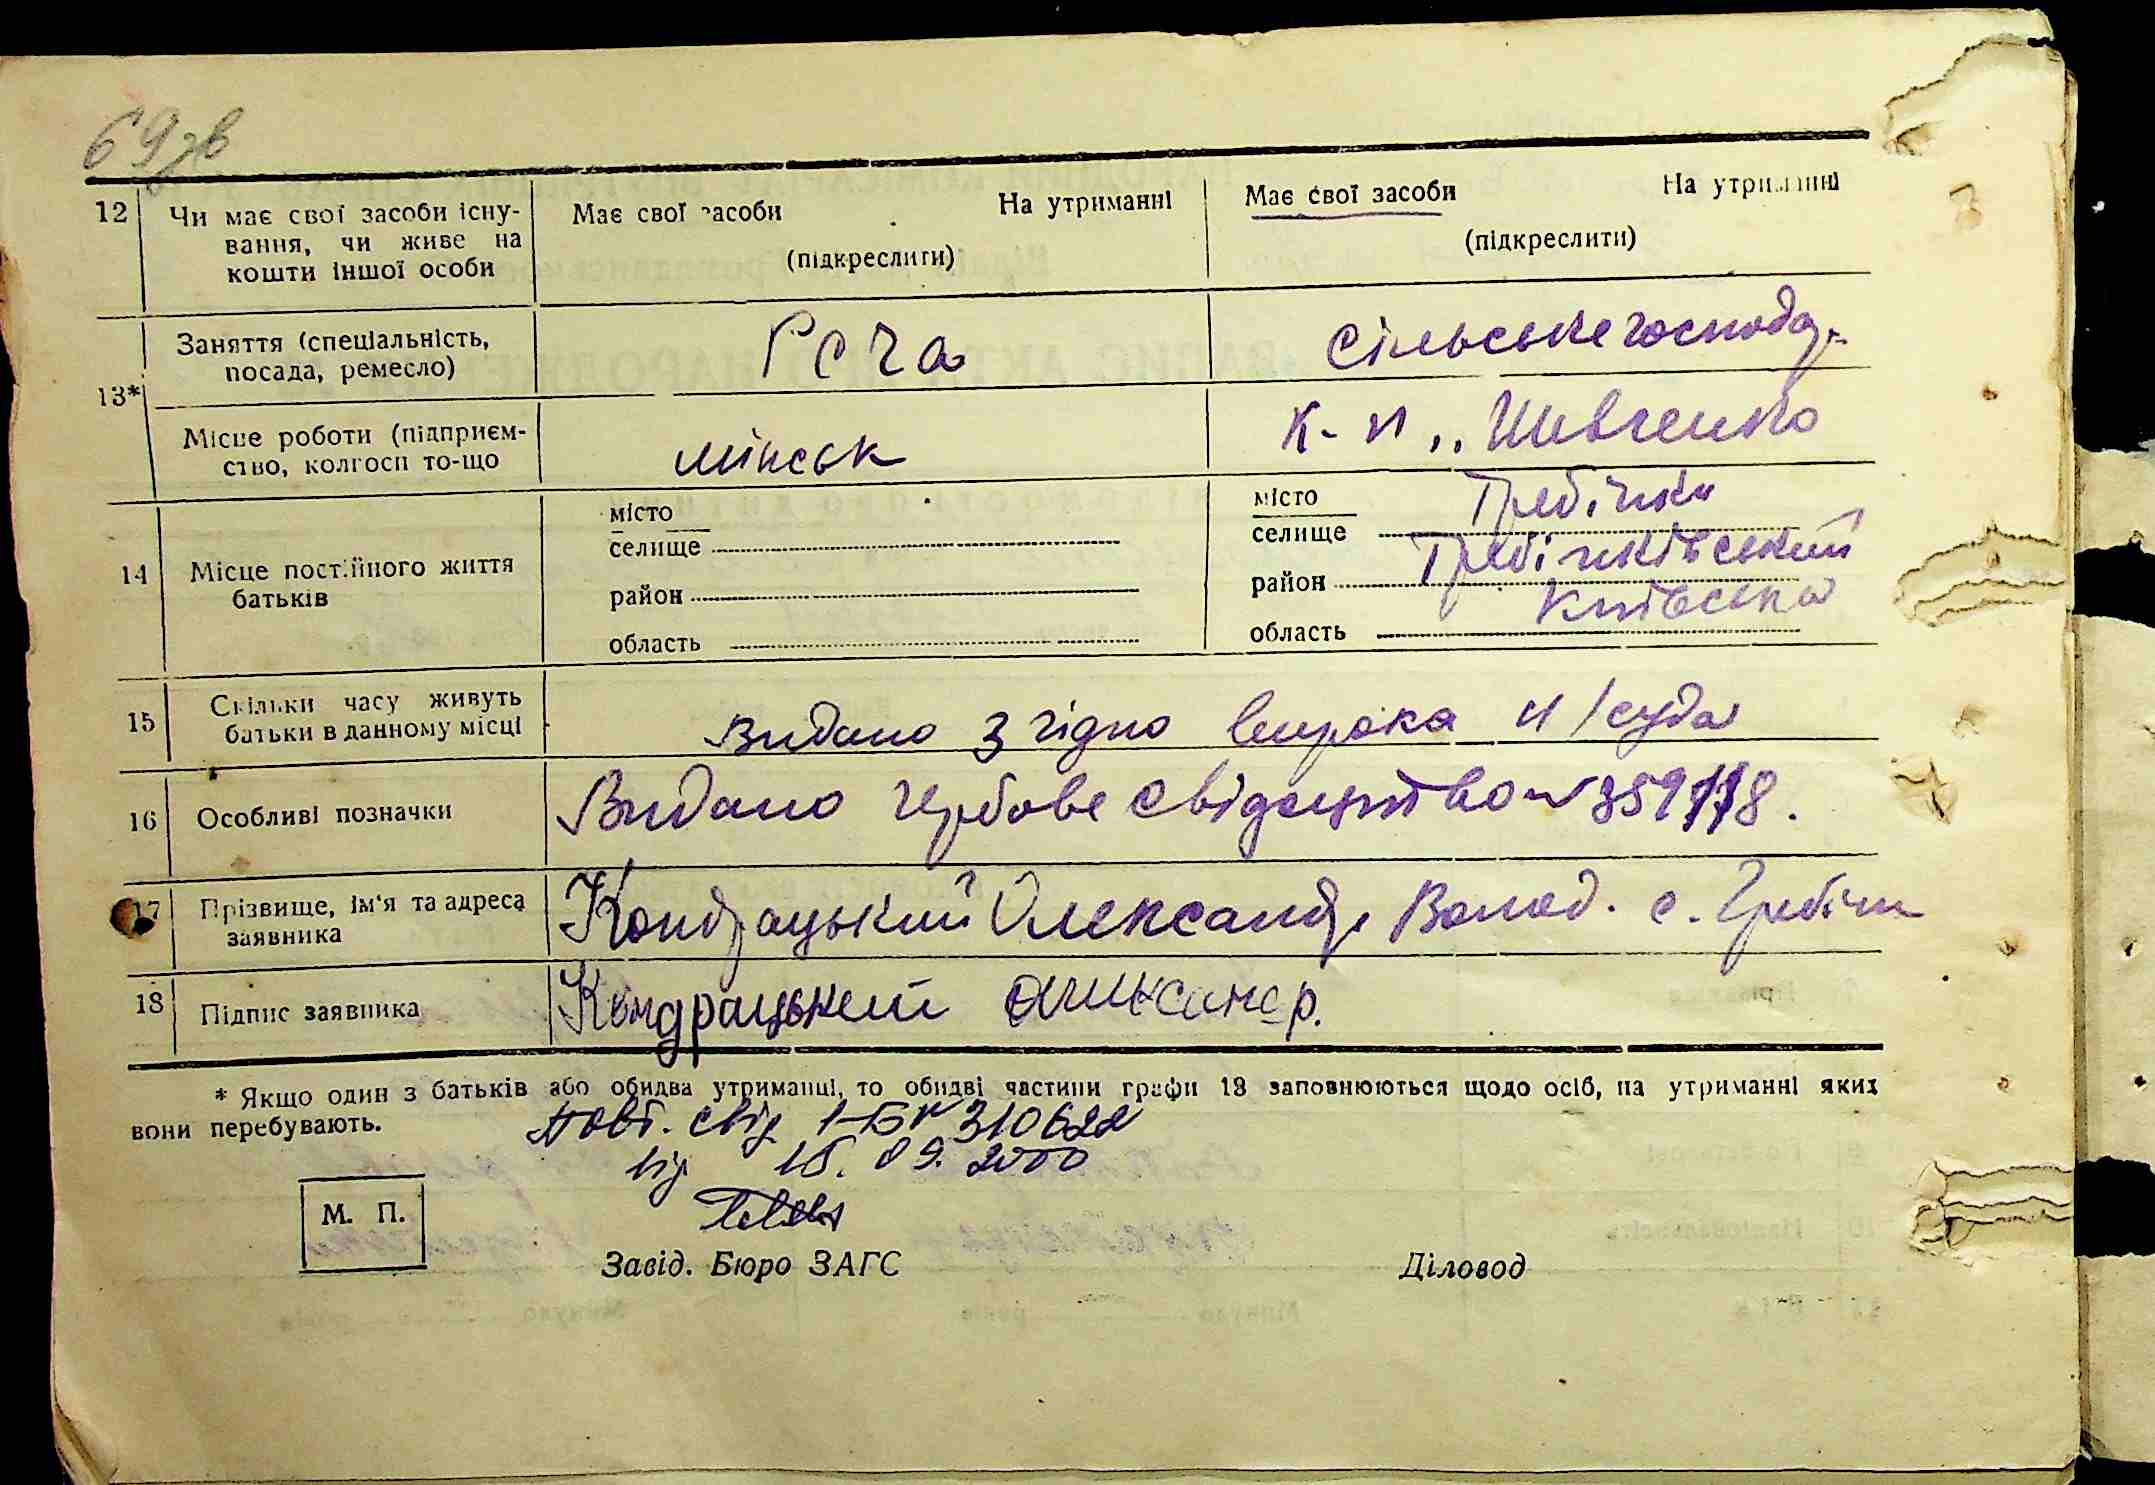 69зв
12 Чи має свої засоби існу- Має свої засоби На утриманні Має свої засоби На утриманні
вання, чи живе на (підкреслити) (підкреслити)
кошти іншої особи
13* Заняття (спеціальність, РСЧА сільське господ.
посада, ремесло)
Місце роботи (підприєм- мінськ к-п „Шевченко
ство, колгосп то-що
14 Місце постійного життя місто місто Гребінки
батьків селище селище
район район Гребінківський
область область Київська
15 Скільки часу живуть Видано згідно вирока н/суда
батьки в данному місці
16 Особливі позначки Видано гербове свідоцтво № 359778.
17 Прізвище, ім'я та адреса Кондрацький Олександр Волод. с. Гребінки
заявника
18 Підпис заявника Кондрацький
* Якщо один з батьків або обидва утриманці, то обидві частини графи 13 заповнюються щодо осіб, на утриманні яких
вони перебувають.
повт. свід 1-БК 310622
від 15.09.2000
М. П.
Завід. Бюро ЗАГС Діловод